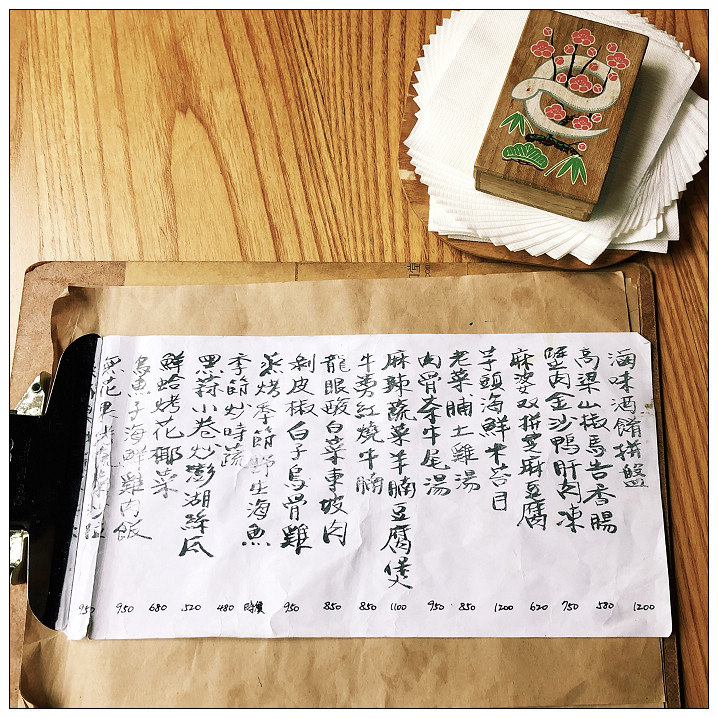 滷味酒餚拼盤 1200
高粱山椒馬告香腸 580
蟹肉金沙鴨肝肉凍 750
麻婆双拼芝麻豆腐 620
芋頭海鮮米苔目 1200
老菜脯土雞湯 850
肉骨茶牛尾湯 950
麻辣蔬菜羊腩豆腐煲 1100
牛蒡紅燒牛腩 850
龍眼酸白菜東坡肉 850
剝皮椒白子烏骨雞 950
蒸烤季節野生海魚 時價
季節炒時蔬 480
黑蒜小卷炒澎湖絲瓜 520
鮮蛤烤花椰菜 680
烏魚子海鮮雞肉飯 950
950